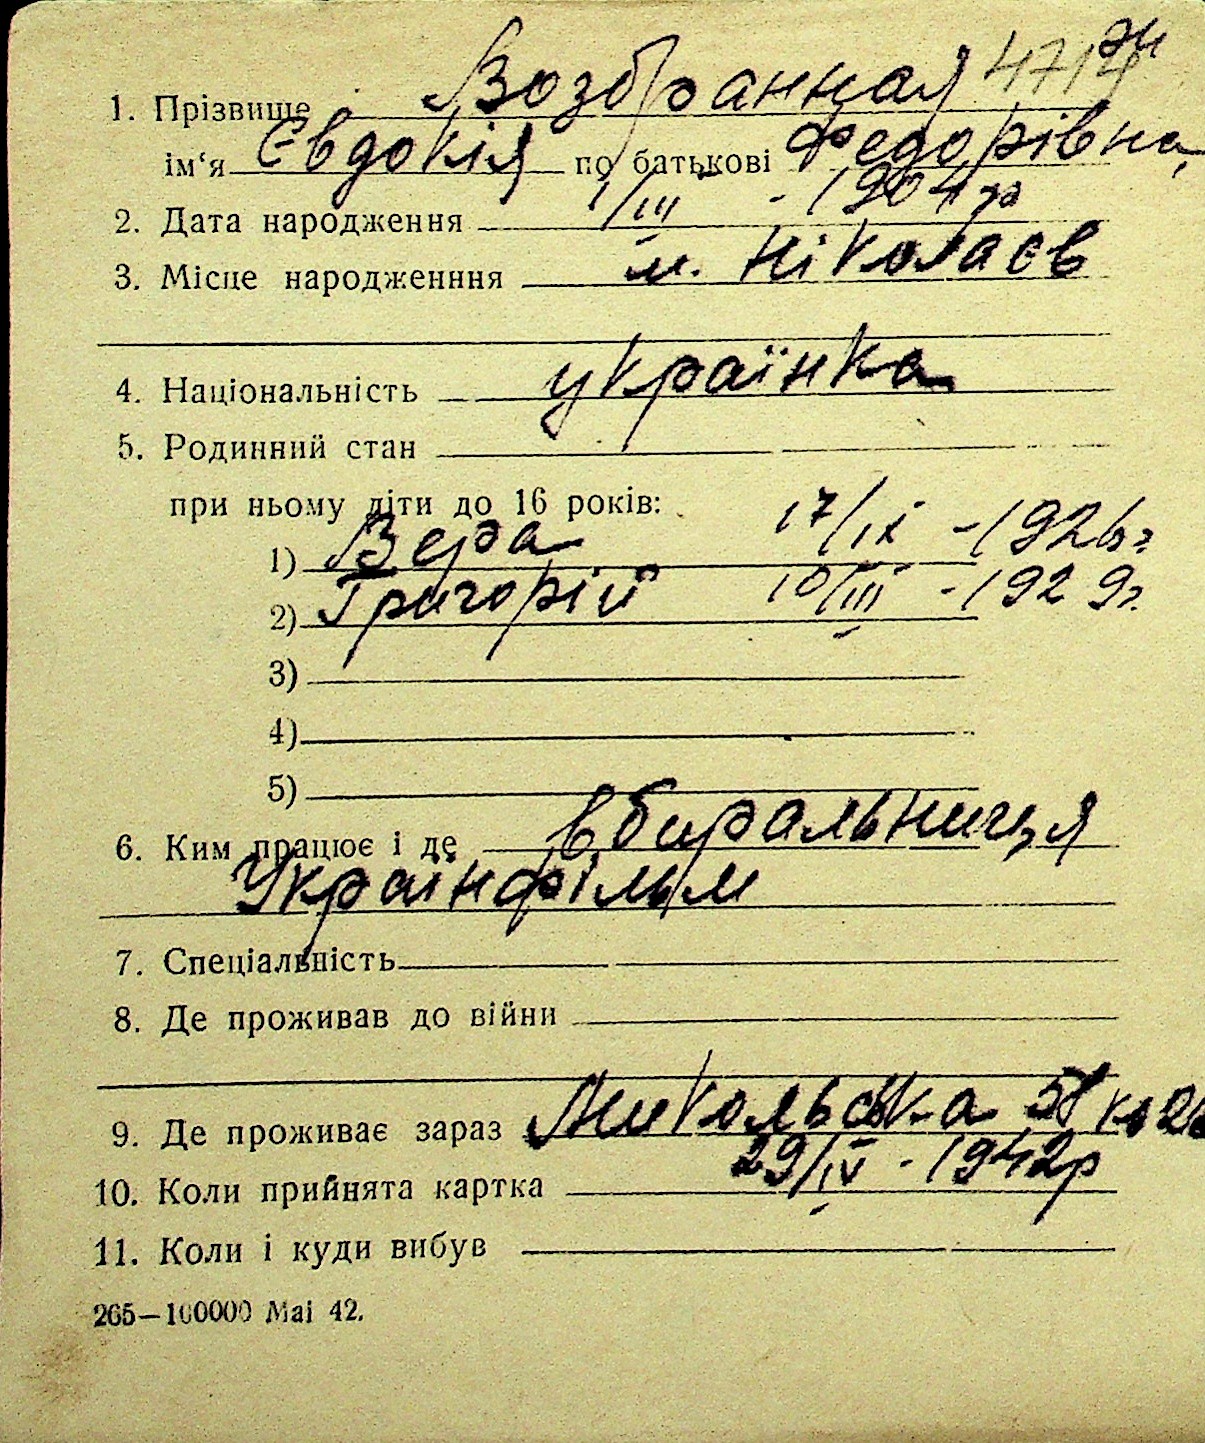 1. Прізвище Возбранная 4714
ім‘я Євдокія по батькові Федорівна
2. Дата народження 1/III - 1904 р
3. Місце народженння м. Ніколаєв
4. Національність українка
5. Родинний стан
при ньому діти до 16 років:
1) Вера 17/IX - 1926 г.
2) Григорій 10/III - 1929 г.
3)
4)
5)
6. Ким працює і де вбиральниця
Українфільм
7. Спеціальність
8. Де проживав до війни
9. Де проживає зараз Микольська
10. Коли прийнята картка 29/IV - 1942 р
11. Коли і куди вибув
265—100000 Mai 42.